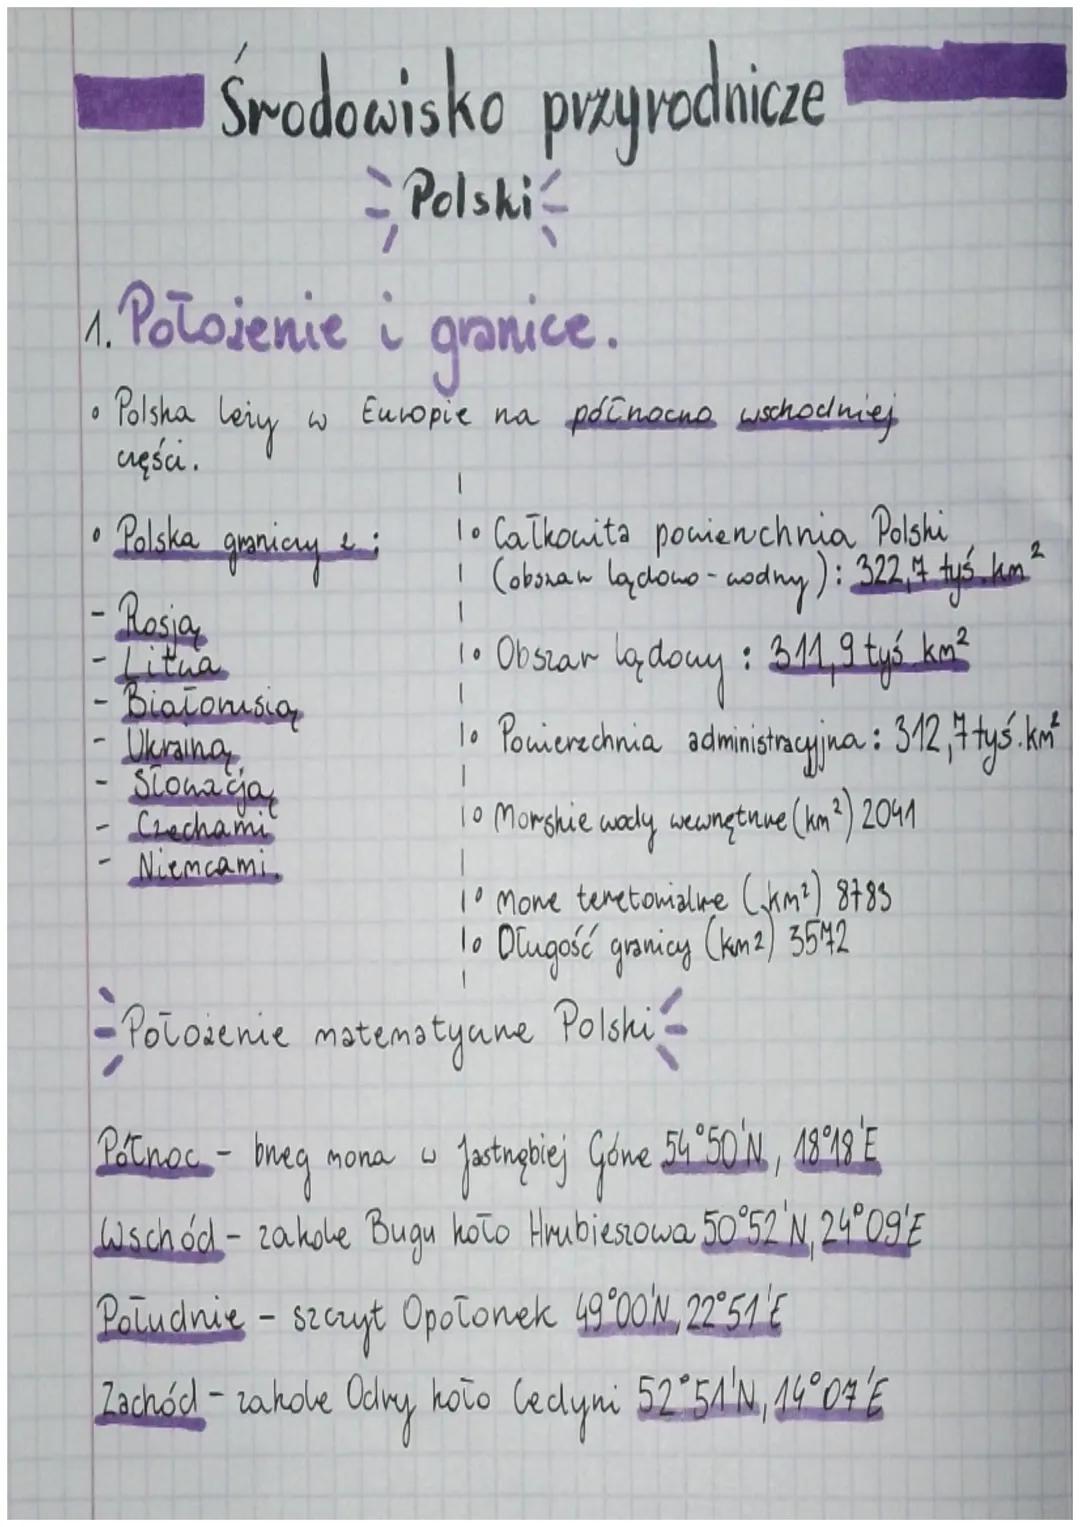 Środowisko przyrodnicze
Polski
1. Położenie i granice.
• Polska leży w Europie na północno wschodniej
części.
• Polska graniczy z:
- Rosją
- Litwa
- Białorusią
- Ukrainą
- Słowacją
- Czechami
- Niemcami.
• Całkowita powierzchnia Polski
(obszar lądowo-wodny): 322,7 tyś. km²
• Obszar lądowy: 311,9 tyś km²
• Powierzchnia administracyjna: 312,7 tyś. km²
• Morskie wody wewnętrzne (km²) 2041
• Morze terytorialne (km²) 8783
• Długość granicy (km2) 3572
Położenie matematyczne Polski
Północ - brzeg morza w Jastrzębiej Górze 54°50'N, 18°18'E
Wschód - zakole Bugu koło Hrubieszowa 50°52'N, 24°09'E
Południe - szczyt Opołonek 49°00'N, 22°51'E
Zachód - zakole Odry koło Cedyni 52°51'N, 14°07'E